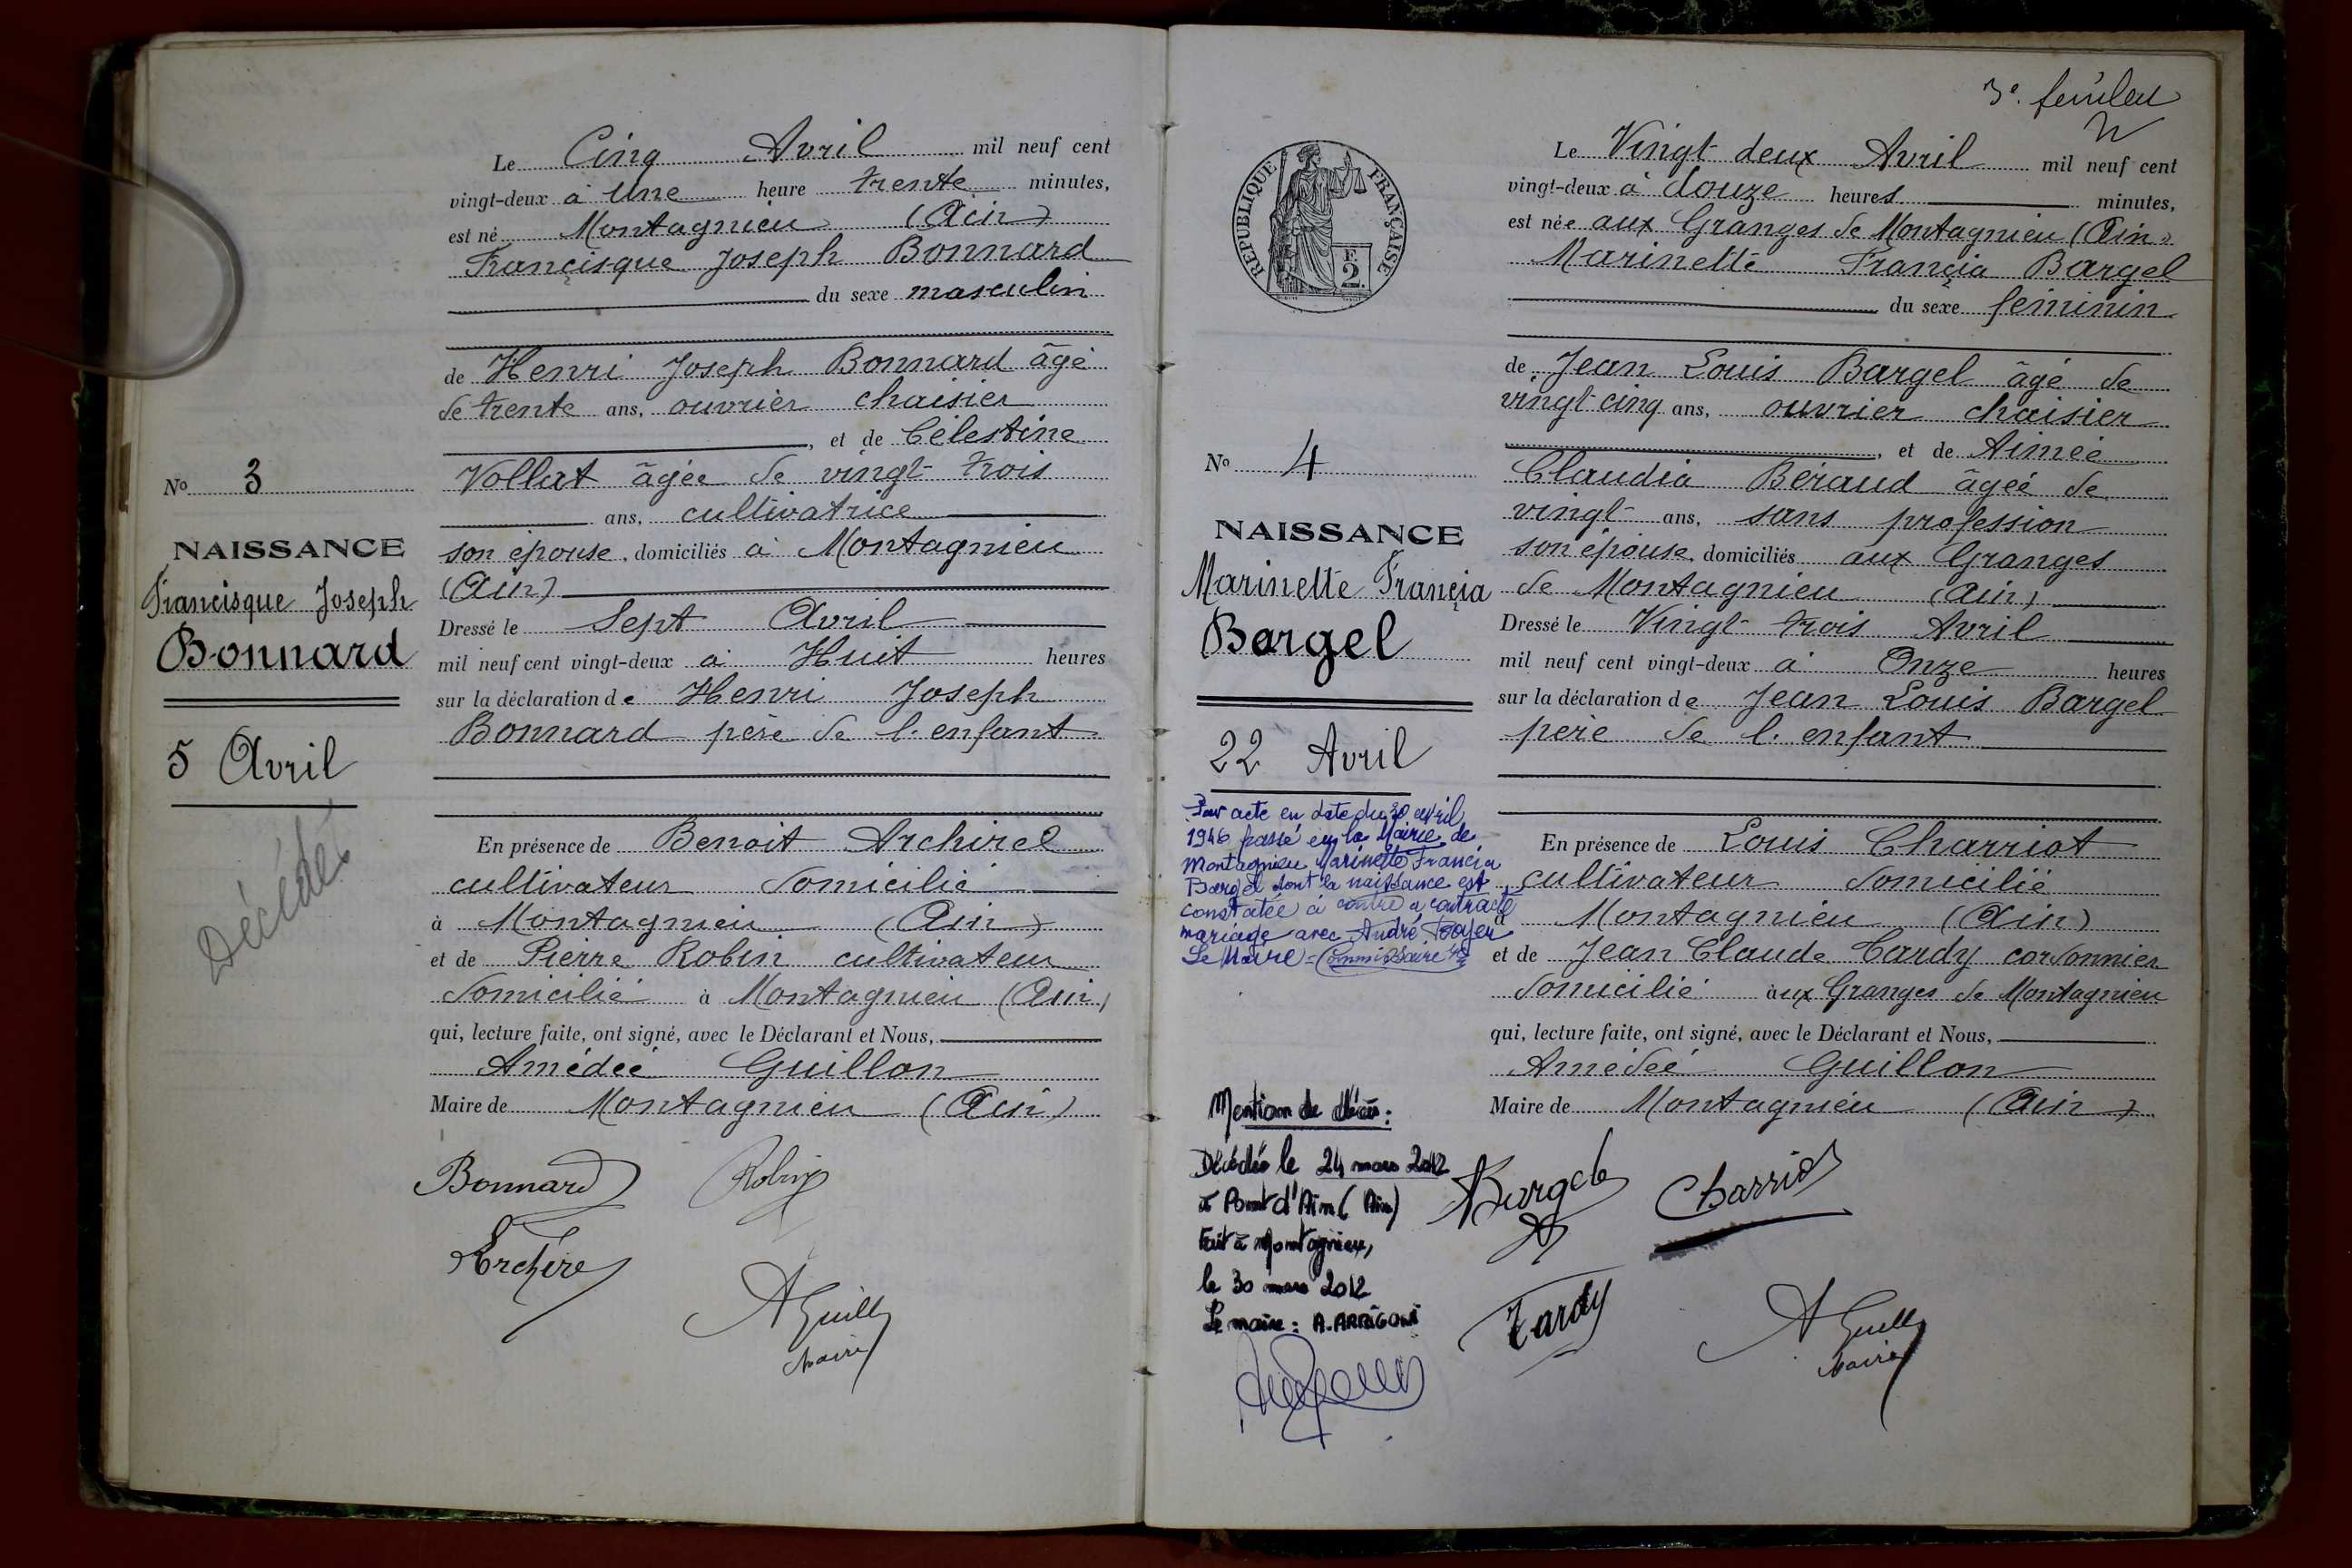 Le Cinq Avril mil neuf cent
vingt-deux à une heure trente minutes,
est né Montagnieu (Ain)
Françisque Joseph Bonnard
du sexe masculin
de Henri Joseph Bonnard âgé
de trente ans, ouvrier chaisier
, et de Célestine
Vollat âgée de vingt trois
ans, cultivatrice
son épouse, domiciliés à Montagnieu
(Ain)
Dressé le Sept Avril
mil neuf cent vingt-deux à Huit heures
sur la déclaration de Henri Joseph
Bonnard père de l'enfant
En présence de Benoit Archirel
cultivateur domicilié
à Montagnieu (Ain)
et de Pierre Robin cultivateur
domicilié à Montagnieu (Ain)
qui, lecture faite, ont signé, avec le Déclarant et Nous,
Amédée Guillon
Maire de Montagnieu (Ain)
No 3
NAISSANCE
Francisque Joseph
Bonnard
5 Avril
Décédé
Bonnard Robin
A Guill
Maire
3e feuillet
RÉPUBLIQUE FRANÇAISE
E
2.
Le Vingt deux Avril mil neuf cent
vingt-deux à douze heures minutes,
est née aux Granges de Montagnieu (Ain)
Marinette Françia Bargel
du sexe féminin
de Jean Louis Bargel âgé de
vingt cinq ans, ouvrier chaisier
, et de Aimée
Claudia Béraud âgée de
vingt ans, sans profession
son épouse, domiciliés aux Granges
de Montagnieu (Ain)
Dressé le Vingt trois Avril
mil neuf cent vingt-deux à Onze heures
sur la déclaration de Jean Louis Bargel
père de l'enfant
En présence de Louis Charriot
cultivateur domicilié
à Montagnieu (Ain)
et de Jean Claude Tardy cordonnier
domicilié aux Granges de Montagnieu
qui, lecture faite, ont signé, avec le Déclarant et Nous,
Amédée Guillon
Maire de Montagnieu (Ain)
No 4
NAISSANCE
Marinette Françia
Bargel
22 Avril
Par acte en date du 30 avril
1946 passé en la Mairie de
Montagnieu Marinette Francia
Bargel dont la naissance est
constatée ci contre a contracté
mariage avec André
Le Maire
Mention de décès :
Décédée le 24 mars 2012
à Pont d'Ain (Ain)
Fait à Montagnieu,
le 30 mars 2012
Le maire : A. ARRIGONI
Bargel Charriot
Tardy
A Guill
Maire